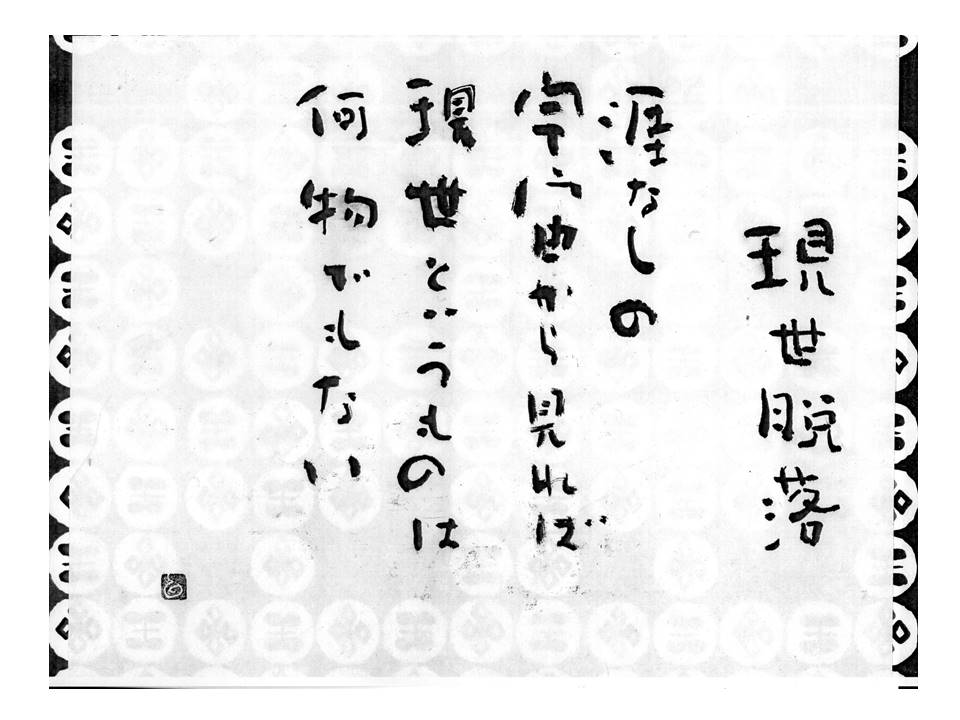 現世脱落
涯なしの
宇宙から見れば
現世というものは
何物でもない